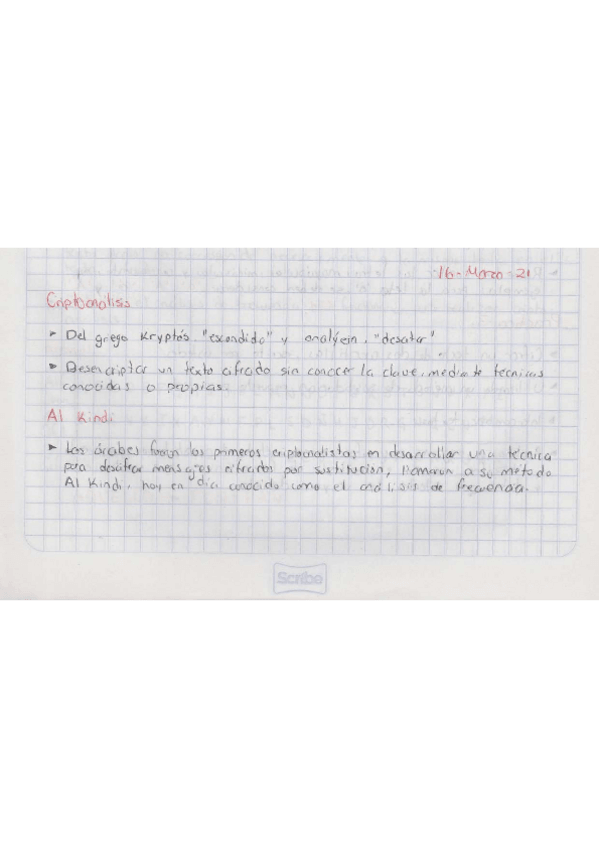 16-Marzo-21
Criptoanálisis
➤ Del griego Kryptós "escondido" y analýein "desatar"
➤ Desencriptar un texto cifrado sin conocer la clave, mediante técnicas
conocidas o propias.
Al Kindi
➤ Los árabes fueron los primeros criptoanalistas en desarrollar una técnica
para descifrar mensajes cifrados por sustitución, llamaron a su método
Al Kindi, hoy en día conocido como el análisis de frecuencia.
Scribe